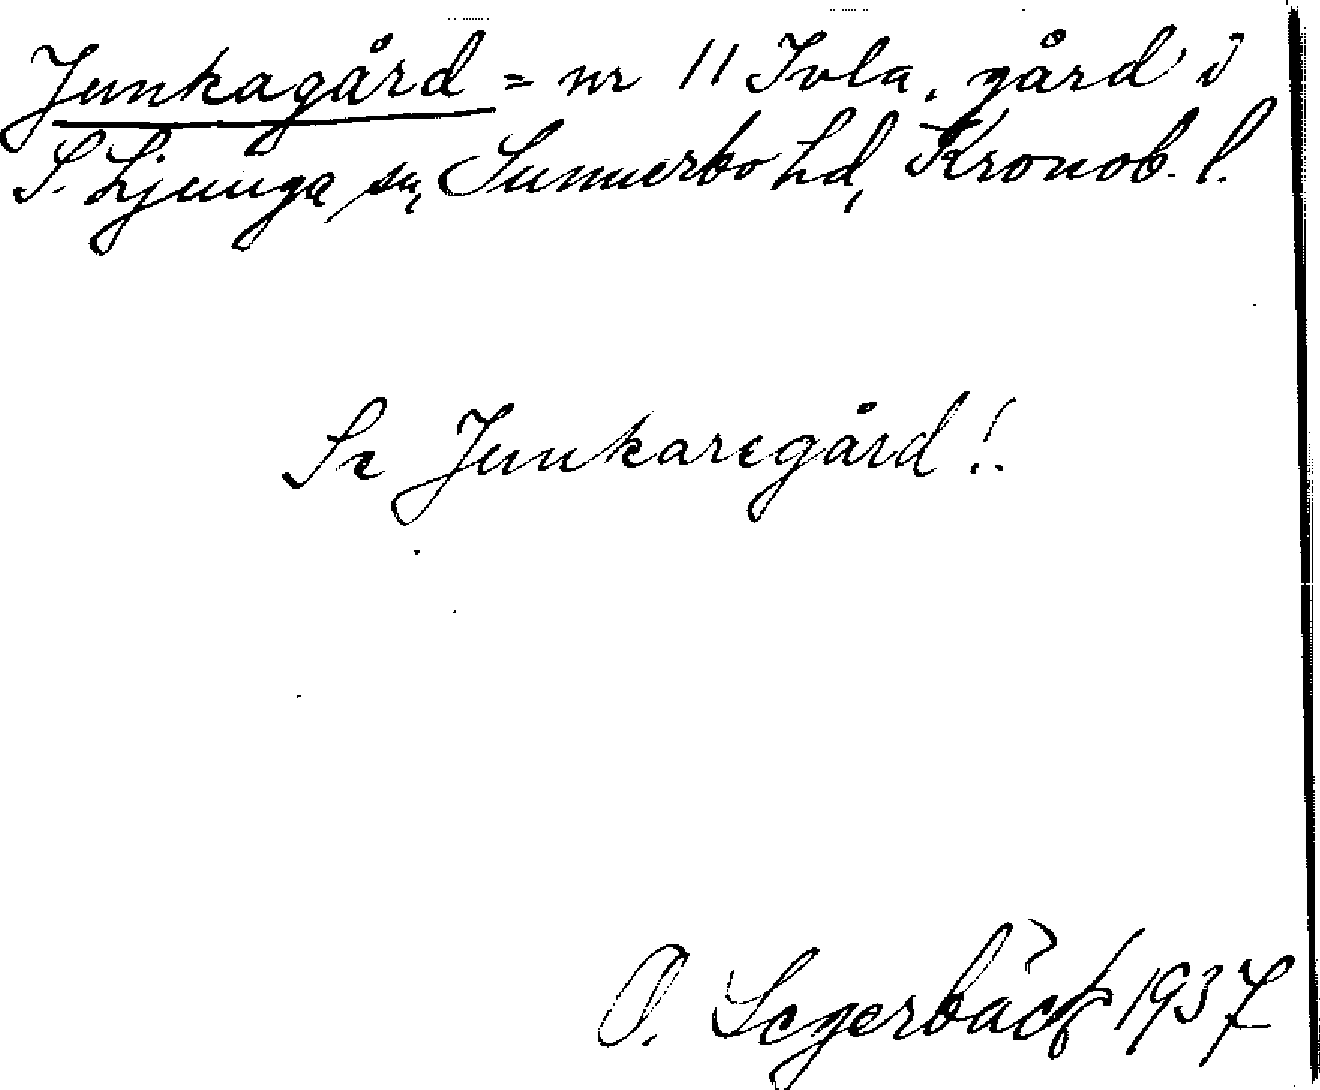 Junkagård = nr 11 Ivla, gård i
S. Ljunga sn, Sunnerbo hd, Kronob. l.
Se Junkaregård!
O. Segerbäck 1937